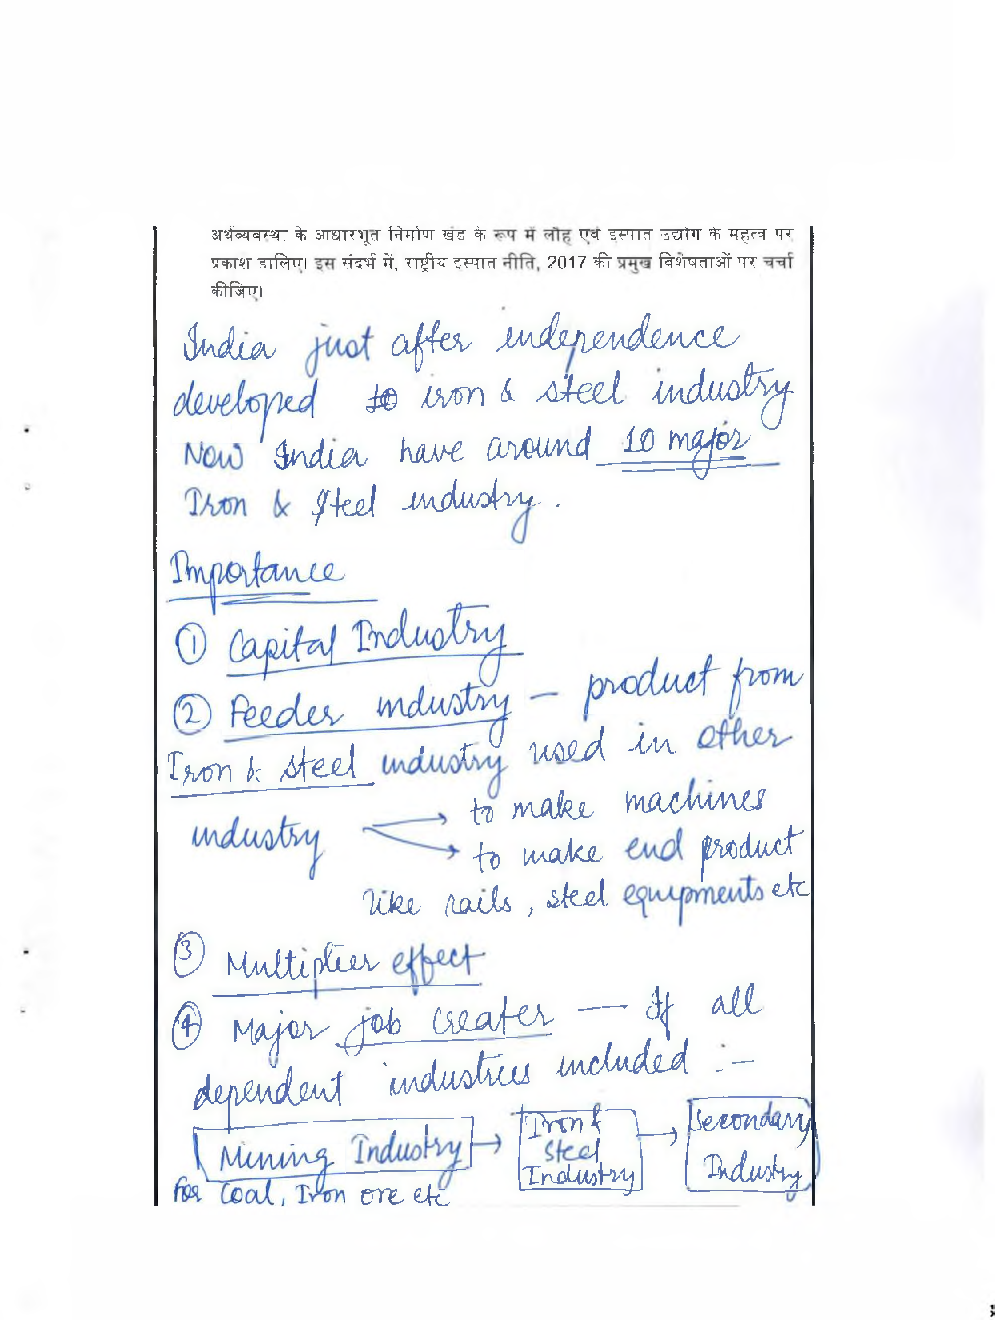 अर्थव्यवस्था के आधारभूत निर्माण खंड के रूप में लौह एवं इस्पात उद्योग के महत्व पर
प्रकाश डालिए। इस संदर्भ में, राष्ट्रीय इस्पात नीति, 2017 की प्रमुख विशेषताओं पर चर्चा
कीजिए।
India just after independence
developed to iron & steel industry
Now India have around 10 major
Iron & Steel industry.
Importance
① Capital Industry
② Feeder industry — product from
Iron & steel industry used in other
industry → to make machines
→ to make end product
like rails, steel equipments etc
③ Multiplier effect
④ Major job creater — If all
dependent industries included :-
Mining Industry → Iron & Steel Industry → Secondary Industry
for Coal, Iron ore etc